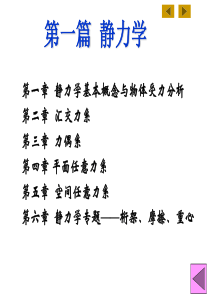 第一篇 静力学
第一章 静力学基本概念与物体受力分析
第二章 汇交力系
第三章 力偶系
第四章 平面任意力系
第五章 空间任意力系
第六章 静力学专题——桁架、摩擦、重心